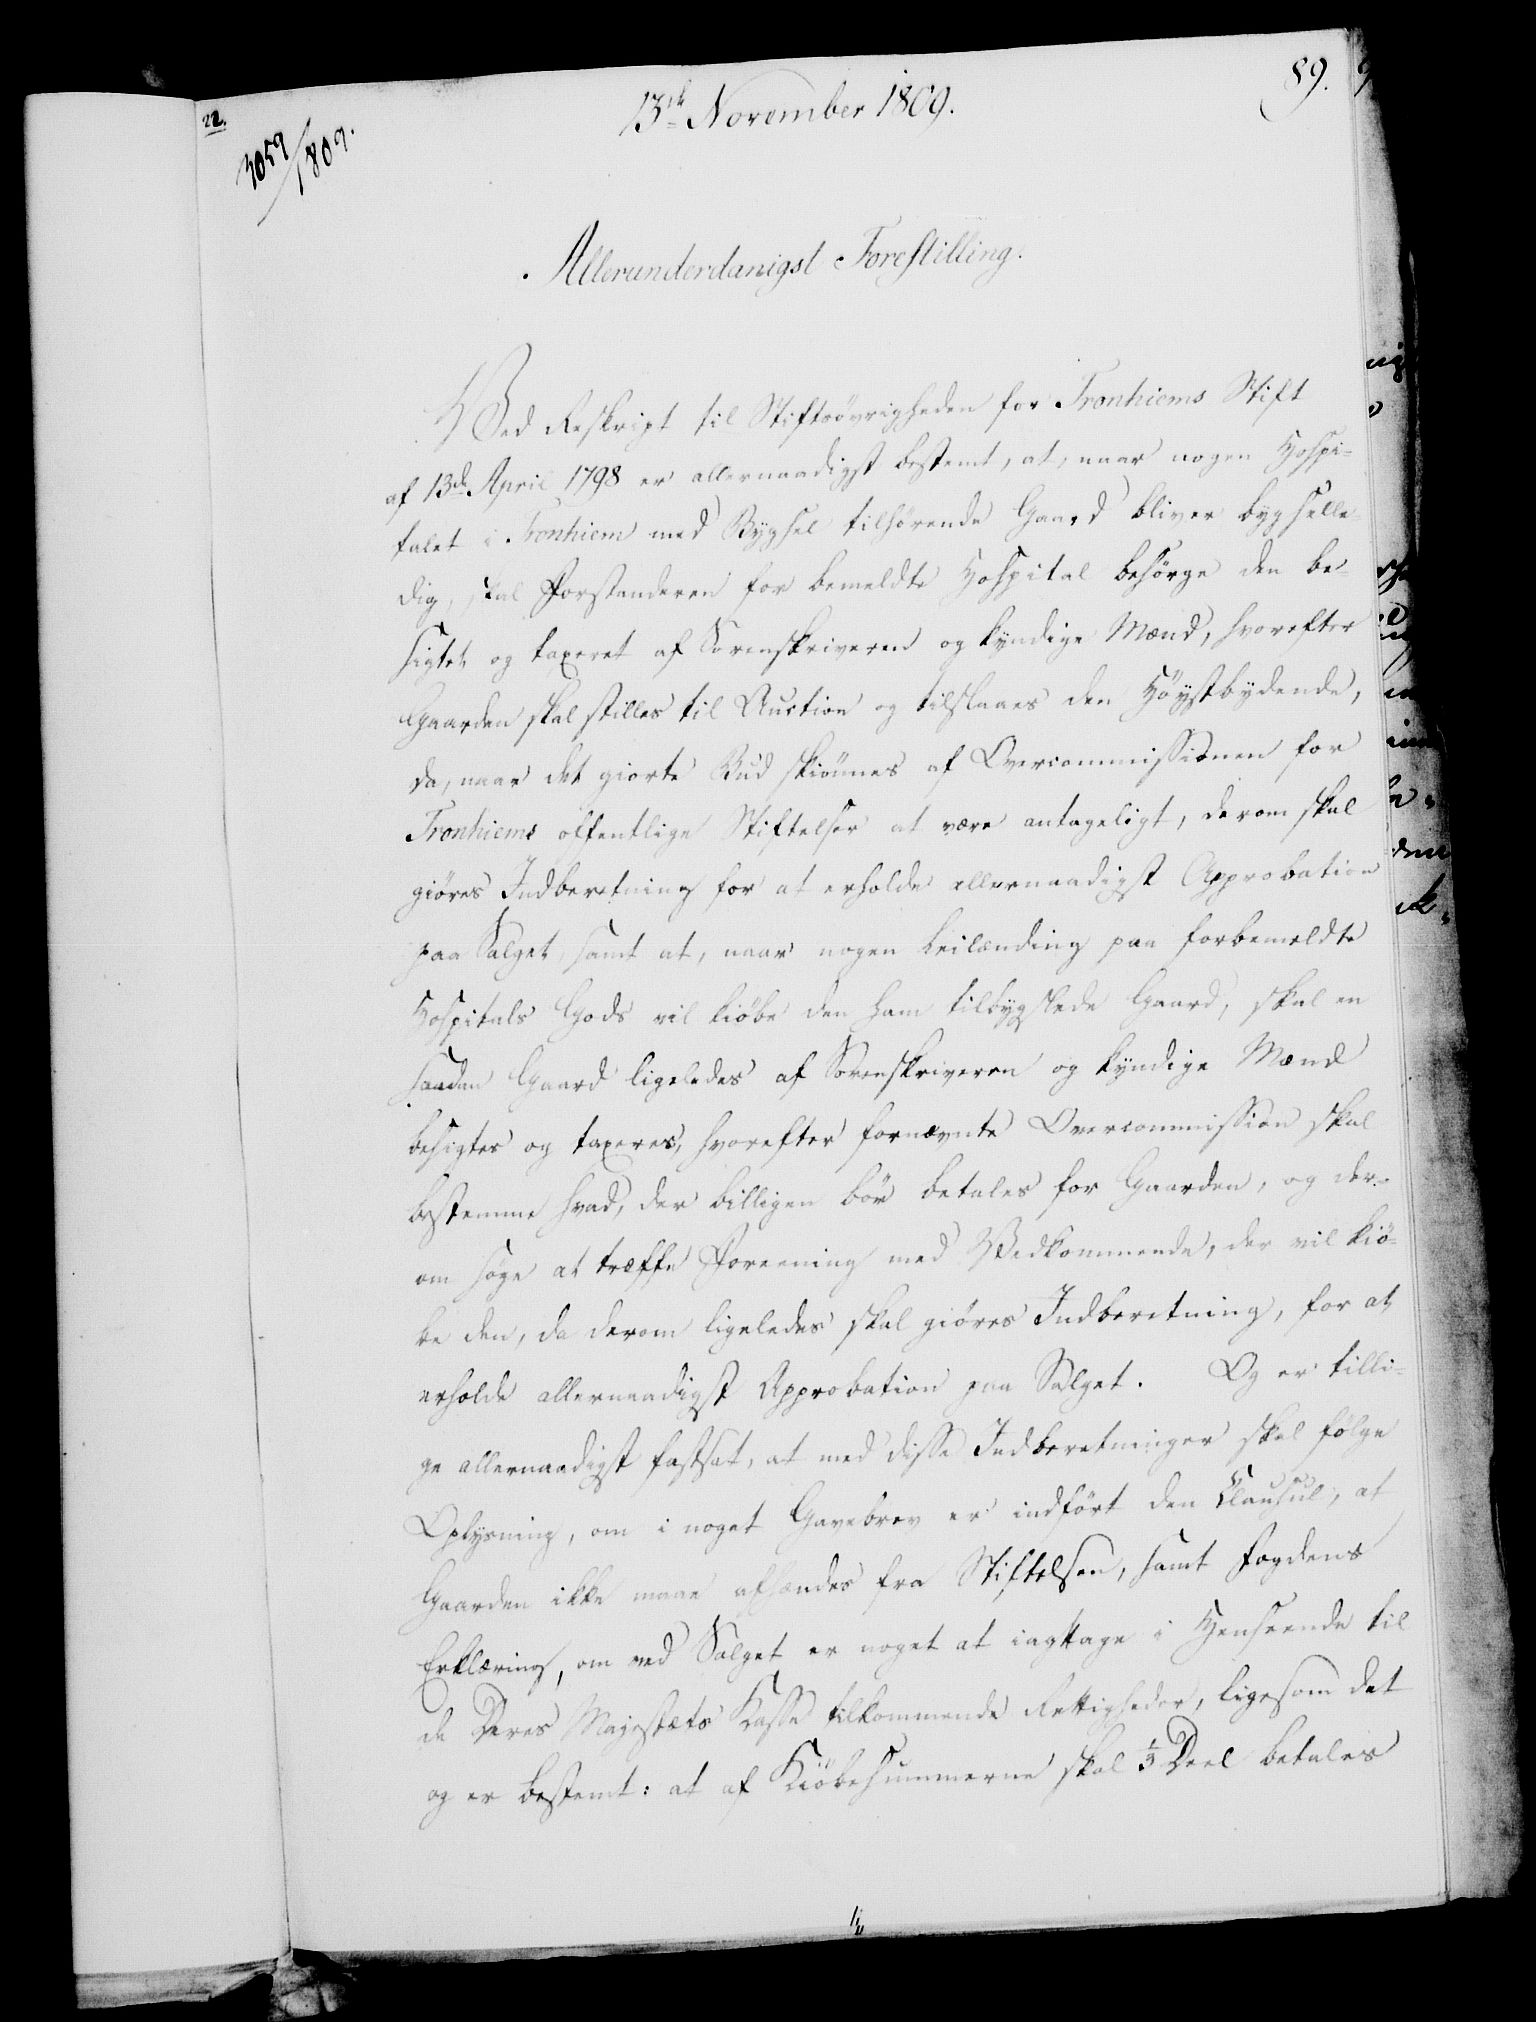 13de November 1809.
89.
22.
3059/1809.
Allerunderdanigst Forestilling.
Ved Reskript til Stiftsøvrigheden for Tronhiems Stift
af 13de April 1798 er allernaadigst bestemt, at, naar nogen Hospi-
talet i Tronhiem med Bygsel tilhørende Gaard bliver bygselle-
dig, skal Forstanderen for bemeldte Hospital besørge den be-
sigtet og taxeret af Sorenskriveren og kyndige Mænd, hvorefter
Gaarden skal stilles til Auction og tilslaaes den Høystbydende,
da, naar det giorte Bud skiønnes af Overcommissionen for
Tronhiems offentlige Stiftelser at være antageligt, derom skal
giøres Indberetning for at erholde allernaadigst Approbation
paa Salget, samt at, naar nogen Leilænding paa forbemeldte
Hospitals Gods vil kiøbe den ham tilbygslede Gaard, skal en
saadan Gaard ligeledes af Sorenskriveren og kyndige Mænd
besigtes og taxeres, hvorefter fornævnte Overcommission skal
bestemme hvad, der billigen bør betales for Gaarden, og der-
om søge at træffe Foreening med Vedkommende, der vil kiø-
be den, da derom ligeledes skal giøres Indberetning, for at
erholde allernaadigst Approbation paa Salget. Og er tilli-
ge allernaadigst fastsat, at med disse Indberetninger skal følge
Oplysning, om i noget Gavebrev er indført den Clausul, at
Gaarden ikke maae afhændes fra Stiftelsen, samt Fogdens
Erklæring, om ved Salget er noget at iagttage i Henseende til
de Deres Majestæts Kasse tilkommende Rettigheder, ligesom det
og er bestemt: at af Kiøbesummerne skal 1/3 Deel betales